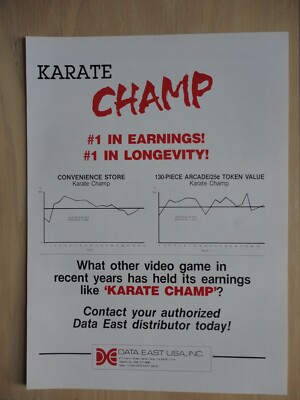 KARATE
CHAMP
#1 IN EARNINGS!
#1 IN LONGEVITY!
CONVENIENCE STORE
Karate Champ
130-PIECE ARCADE/25¢ TOKEN VALUE
Karate Champ
What other video game in
recent years has held its earnings
like ‘KARATE CHAMP’?
Contact your authorized
Data East distributor today!
DATA EAST USA, INC.